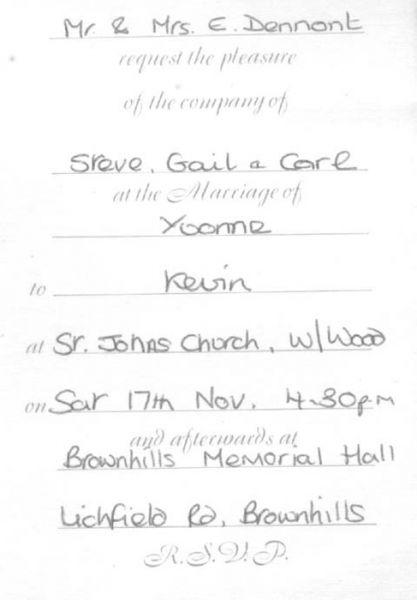 Mr. & Mrs. E. Dennant
request the pleasure
of the company of
Steve, Gail & Carl
at the Marriage of
Yvonne
to Kevin
at St. Johns Church, W/Wood
on Sat 17th Nov. 4.30pm
and afterwards at
Brownhills Memorial Hall
Lichfield Rd, Brownhills
R.S.V.P.